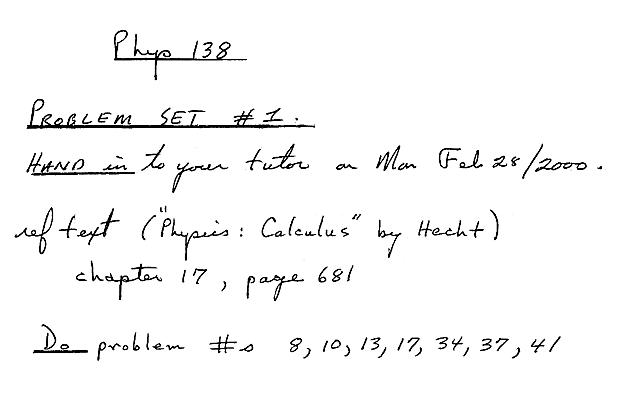 Phys 138
PROBLEM SET #1.
HAND in to your tutor on Mon Feb 28/2000.
ref text ("Physics: Calculus" by Hecht)
chapter 17, page 681
Do problem #s 8, 10, 13, 17, 34, 37, 41